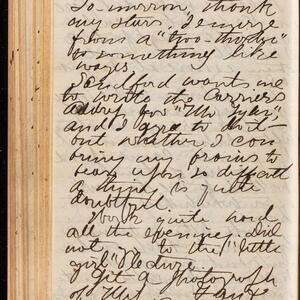 To-morrow, thank
my stars, I emerge
from a "two-thirds"
to something like
wages.
Sandford wants me
to write the Carriers
address for "The
and I agree to do it
but whether I can
bring my brains to
bear upon so difficult
a thing is quite
doubtful.
Work quite hard
all the evening. Did
not to the "little
girl" lecture.
Get a photograph
of